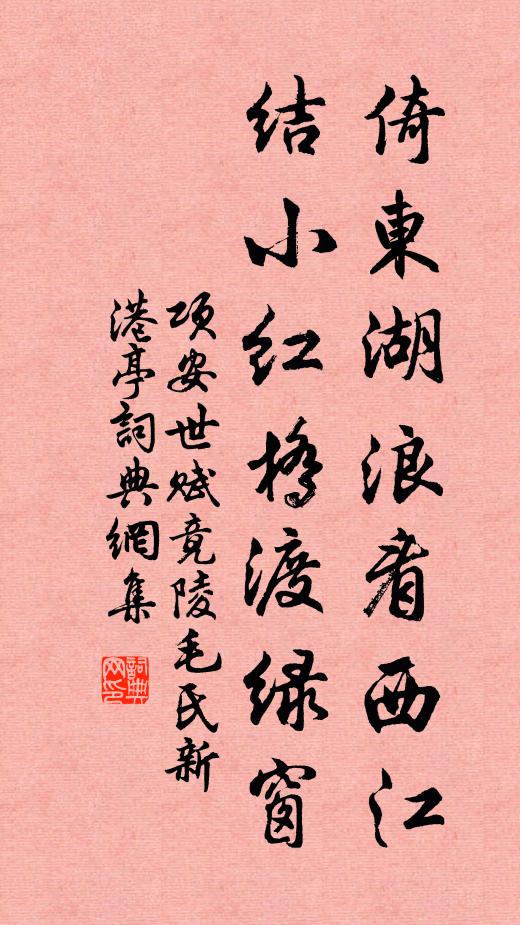 倚東湖浪看西江
結小紅橋渡綠窗
項安世賦竟陵毛氏新
港亭詞典網集
詞典網印